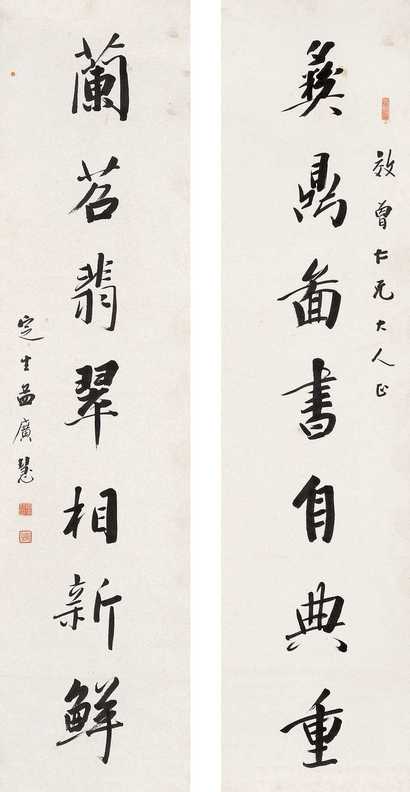 放曾仁兄大人正
彝鼎啚書自典重
蘭苕翡翠相新鮮
定生孟廣慧